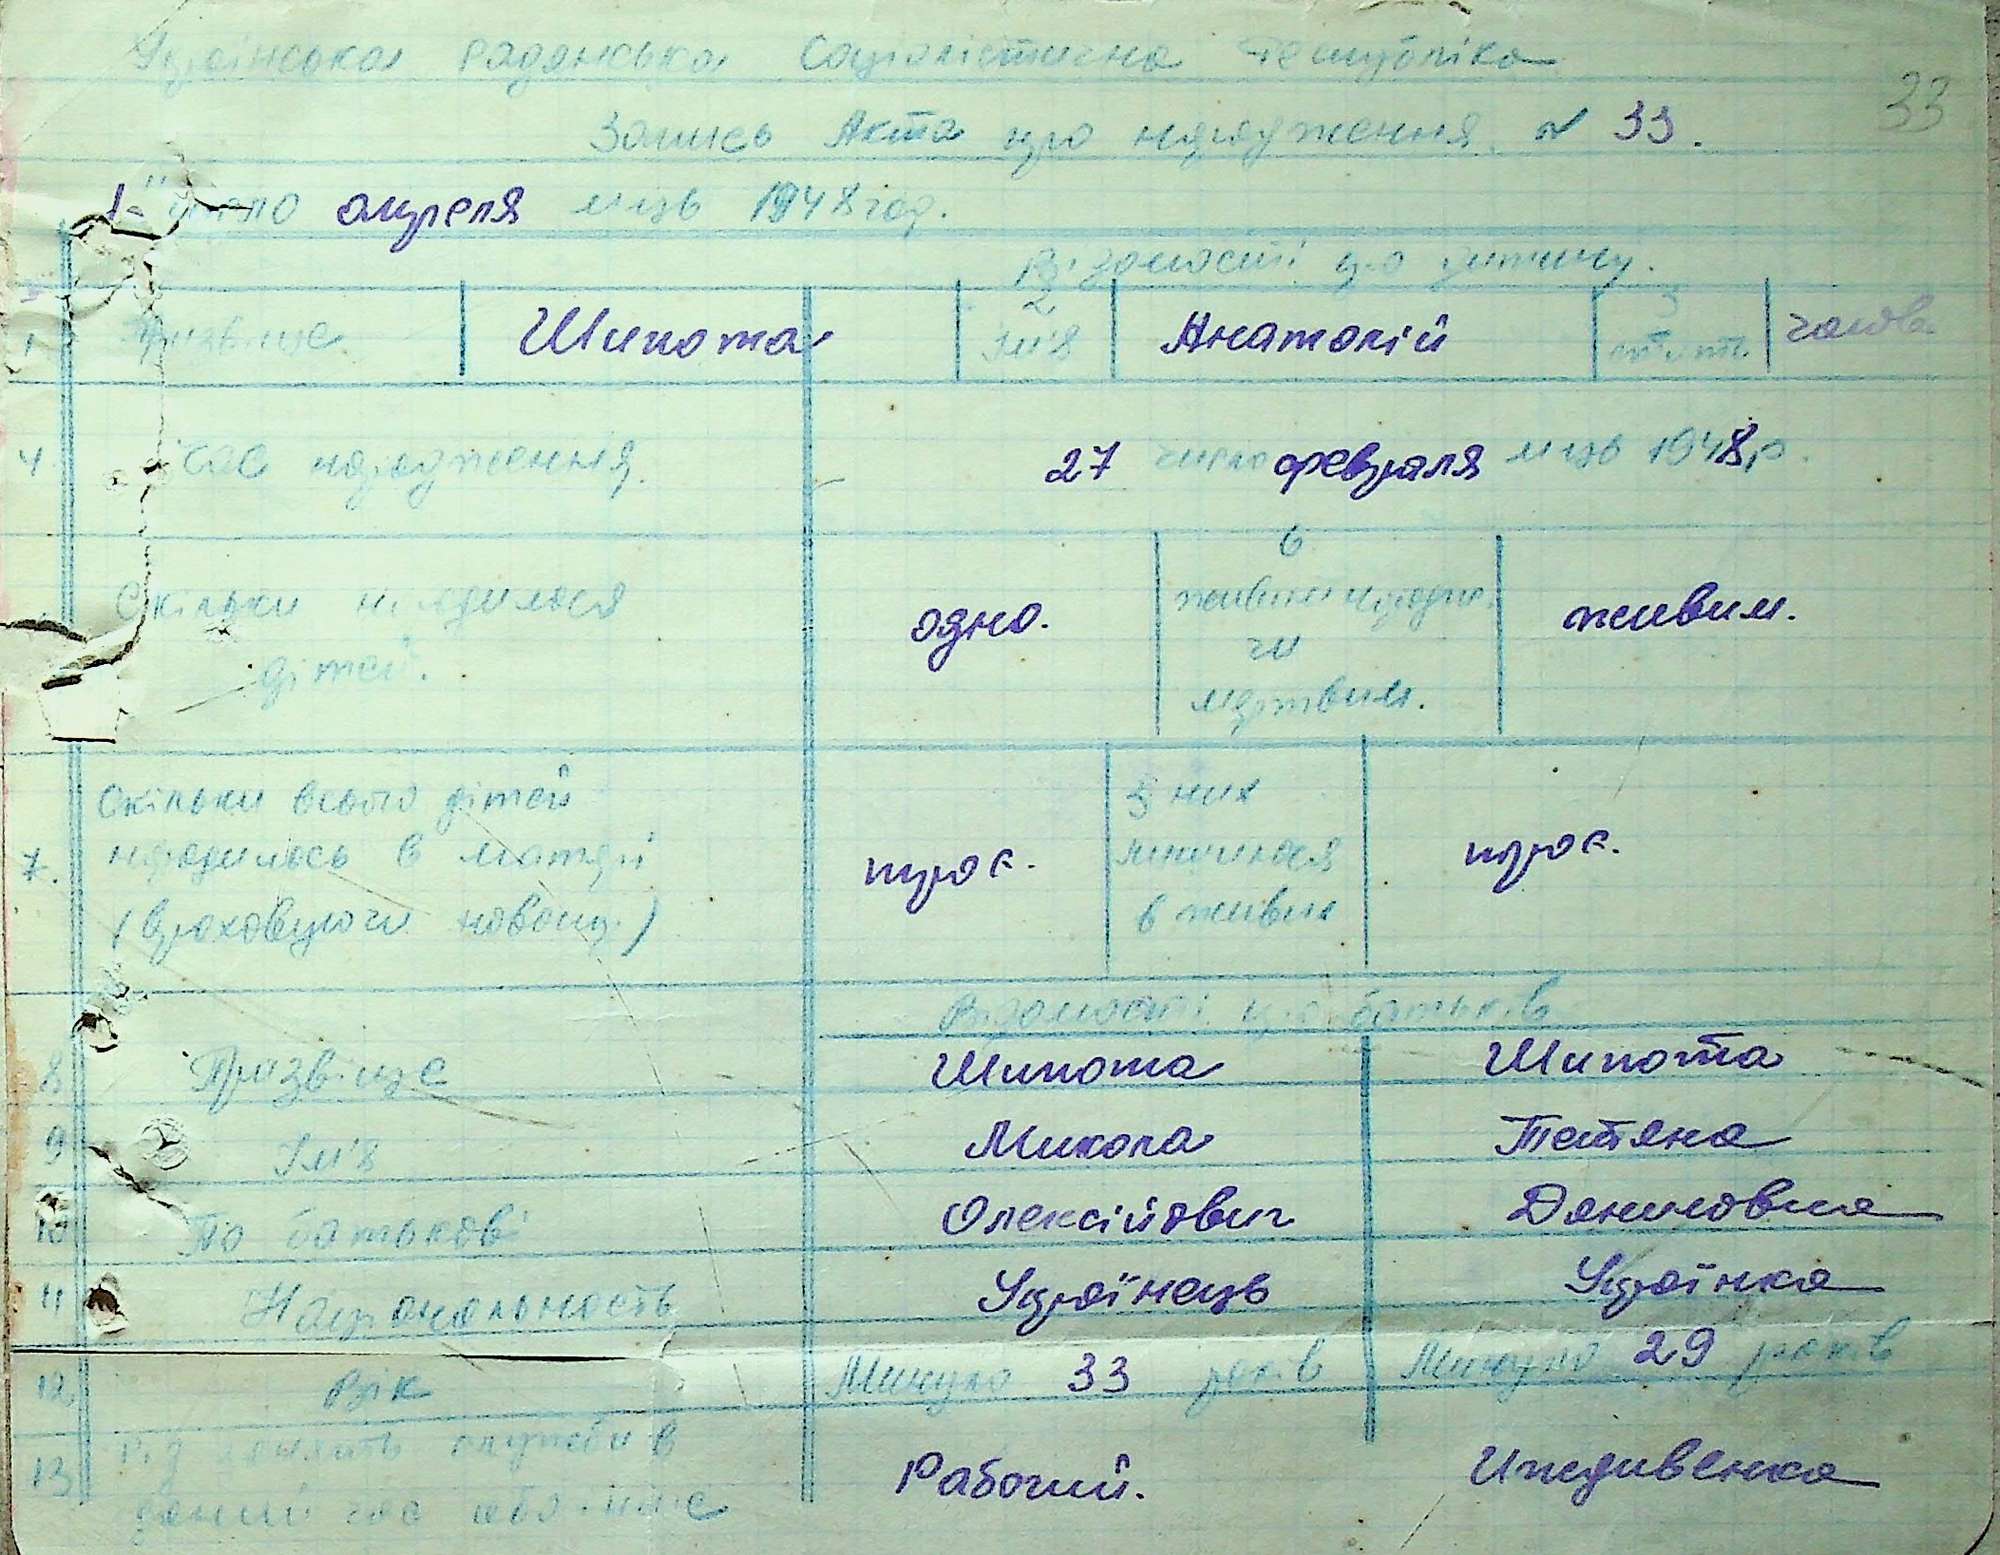 Українська радянська Соціалістична Республіка
33
Запись Акта про народження № 33.
число апреля м-ць 1948 год.
Відомості про дитину.
1 Призвище Шипота 2 Ім'я Анатолій 3 стать чолов.
4 Час народження. 27 число февраля м-ць 1948 р.
Скільки народилося дітей. одно. 6 живим народив. чи мертвим. живим.
7. Скільки всього дітей народилось в матері (враховуючи новонар.) троє. З них лишилося в живих троє.
Відомості про батьків
8 Призвіще Шипота Шипота
9 Ім'я Микола Татяна
10 По батькові Олексійович Даниловна
11 Національность Українець Українка
12 Вік Минуло 33 років Минуло 29 років
13 Рід занять служби в даний час або
Рабочий. Иждивенка